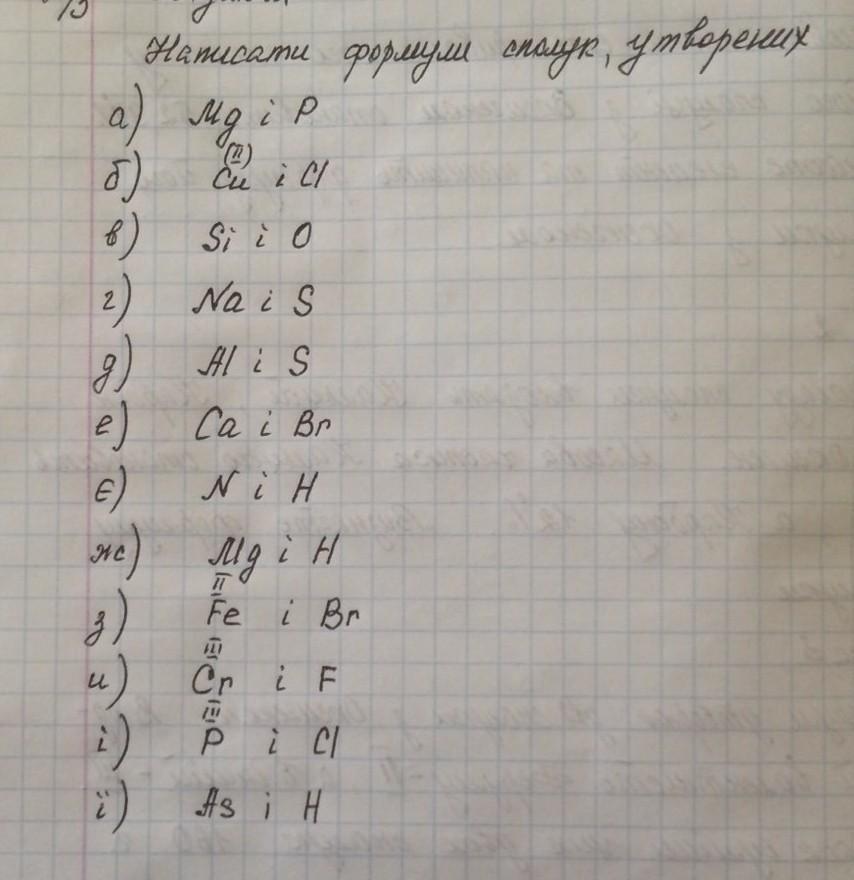 Написати формули сполук, утворених
а) Mg і P
(II)
б) Cu і Cl
в) Si і O
г) Na і S
д) Al і S
е) Ca і Br
є) N і H
ж) Mg і H
II
з) Fe і Br
III
и) Cr і F
III
і) P і Cl
ї) As і H